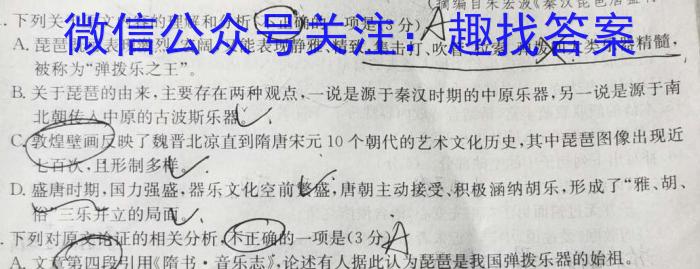 (摘编自朱宏波《秦汉琵琶
下列关 的理解和分析,不正确的一项是 分) A
微信公众号关注:趣找答案
A. 琵琶 能表现静雅、精致,集击打、吹 精髓,
被称为“弹拨乐之王”。
B. 关于琵琶的由来,主要存在两种观点,一说是源于秦汉时期的中原乐器,另一说是源于南
北朝传入中原的古波斯乐器。
C. 敦煌壁画反映了魏晋北凉直到隋唐宋元 10 个朝代的艺术文化历史,其中琵琶图像出现近
七百次,且形制多样。
D. 盛唐时期,国力强盛,器乐文化空前繁盛,唐朝主动接受、积极涵纳胡乐,形成了“雅、胡、
俗”三乐并立的局面。
下列对原文论证的相关分析,不正确的一项是(3 分) A
A. 文章第四段引用《隋书·音乐志》,论述有人据此认为琵琶是我国弹拨乐器的始祖。